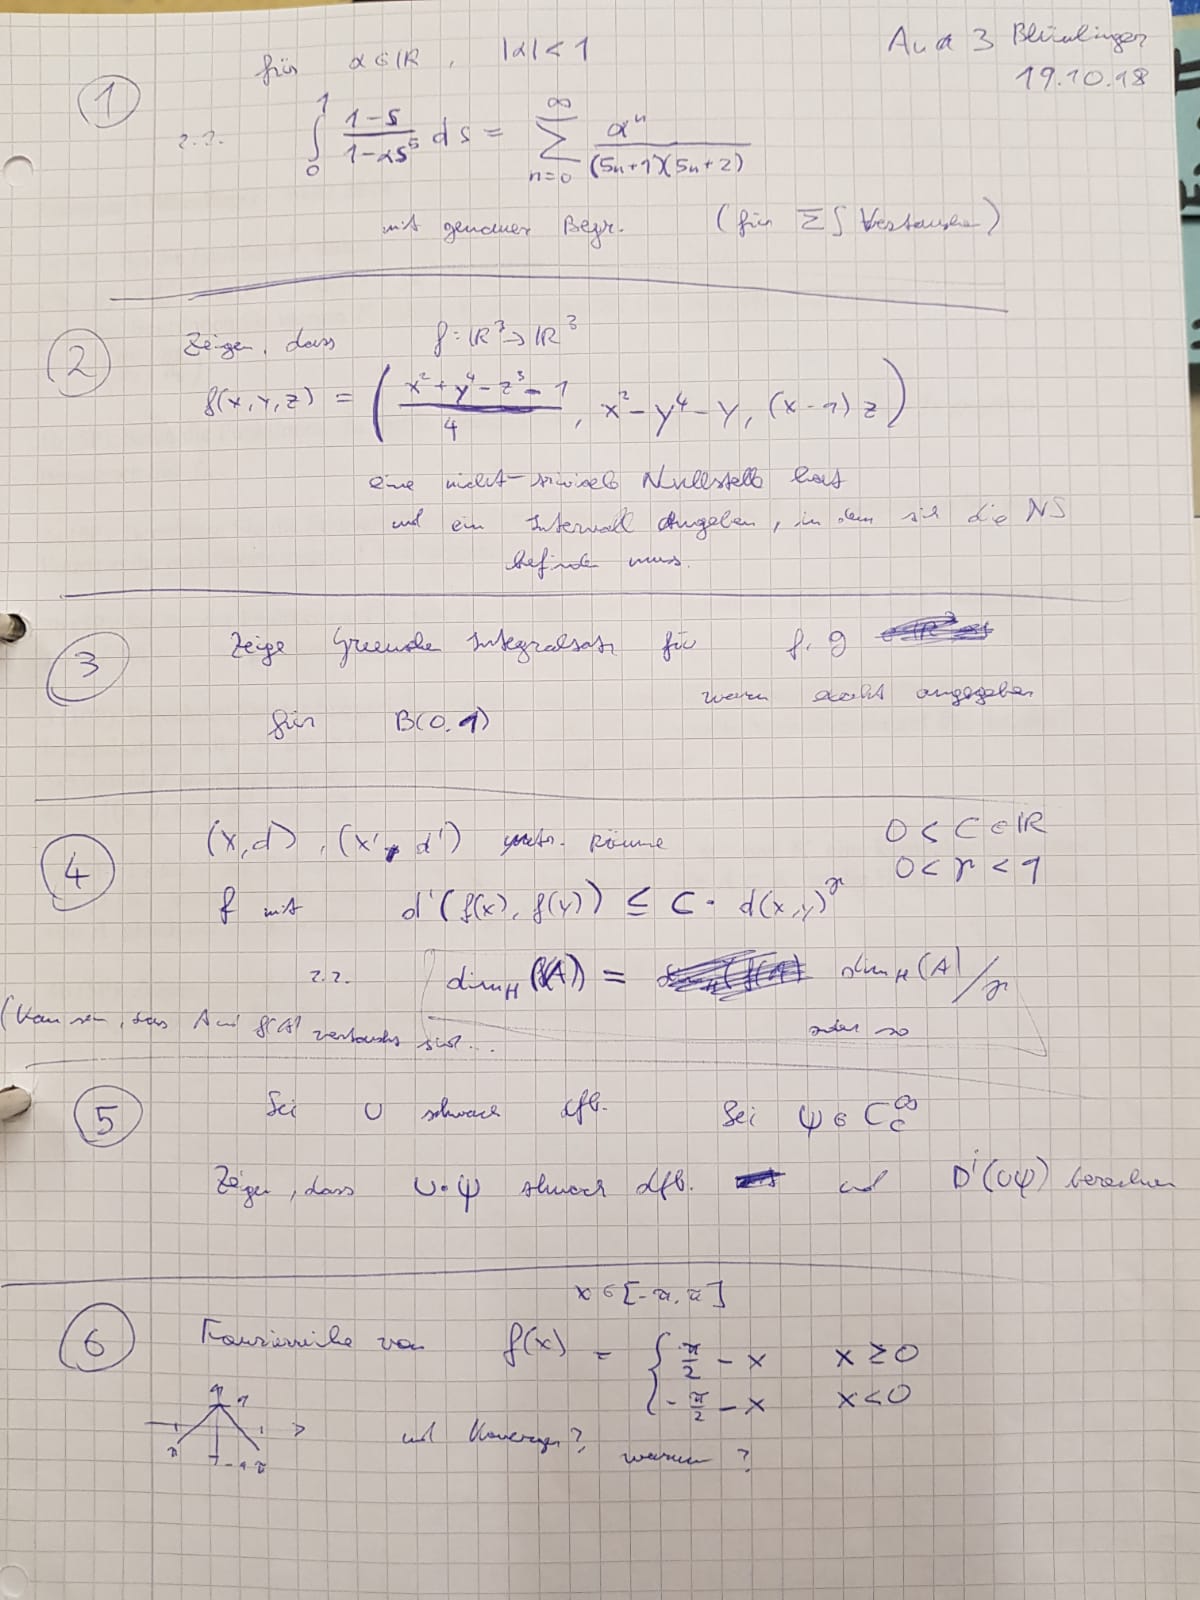 Ana 3 Blümlinger
19.10.18
① für α∈ℝ, |α|<1
z.z. ∫₀¹ (1-s)/(1-αs⁵) ds = ∑_{n=0}^∞ αⁿ/((5n+1)(5n+2))
mit genauer Begr. (für Σ∫ Vertauschen)
② Zeigen, dass f: ℝ³→ℝ³
f(x,y,z) = ((x²+y⁴-z³-1)/4, x²-y⁴-y, (x-1)z)
eine nicht-triviale Nullstelle hat
und ein Intervall angeben, in dem sich die NS
befinden muss.
③ Zeige Greensche Integralsatz für f, g
waren angegeben
für B(0,1)
④ (X,d), (X',d') metr. Räume 0 < C ∈ ℝ
0 < γ < 1
f mit d'(f(x), f(y)) ≤ C · d(x,y)^γ
z.z. dim_H(f(A)) = dim_H(A)/γ
oder so
(Kann sein, dass A und f(A) vertauscht sind...
⑤ Sei U schwach dfb. Sei ψ ∈ C_c^∞
Zeigen, dass U·ψ schwach dfb. und Dⁱ(Uψ) berechnen
x∈[-π,π]
⑥ Fourierreihe von f(x) = { π/2 - x x ≥ 0
-π/2 - x x < 0
und Konvergenz?, warum?